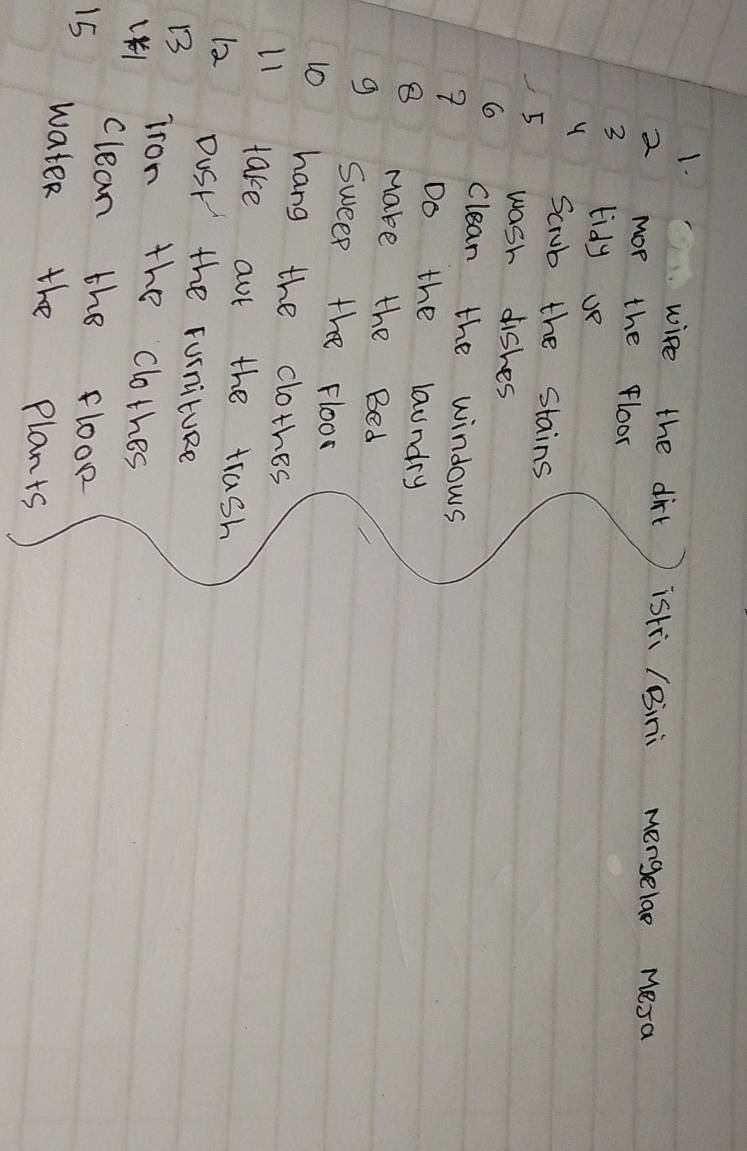 1. wipe the dirt istri / Bini Mengelap Meja
2 Mop the Floor
3 tidy up
4 Scrub the stains
5 wash dishes
6 Clean the windows
7 Do the laundry
8 Make the Bed
9 Sweep the Floor
10 hang the clothes
11 take out the trash
12 Dust the Furniture
13 iron the clothes
14 Clean the Floor
15 Water the Plants